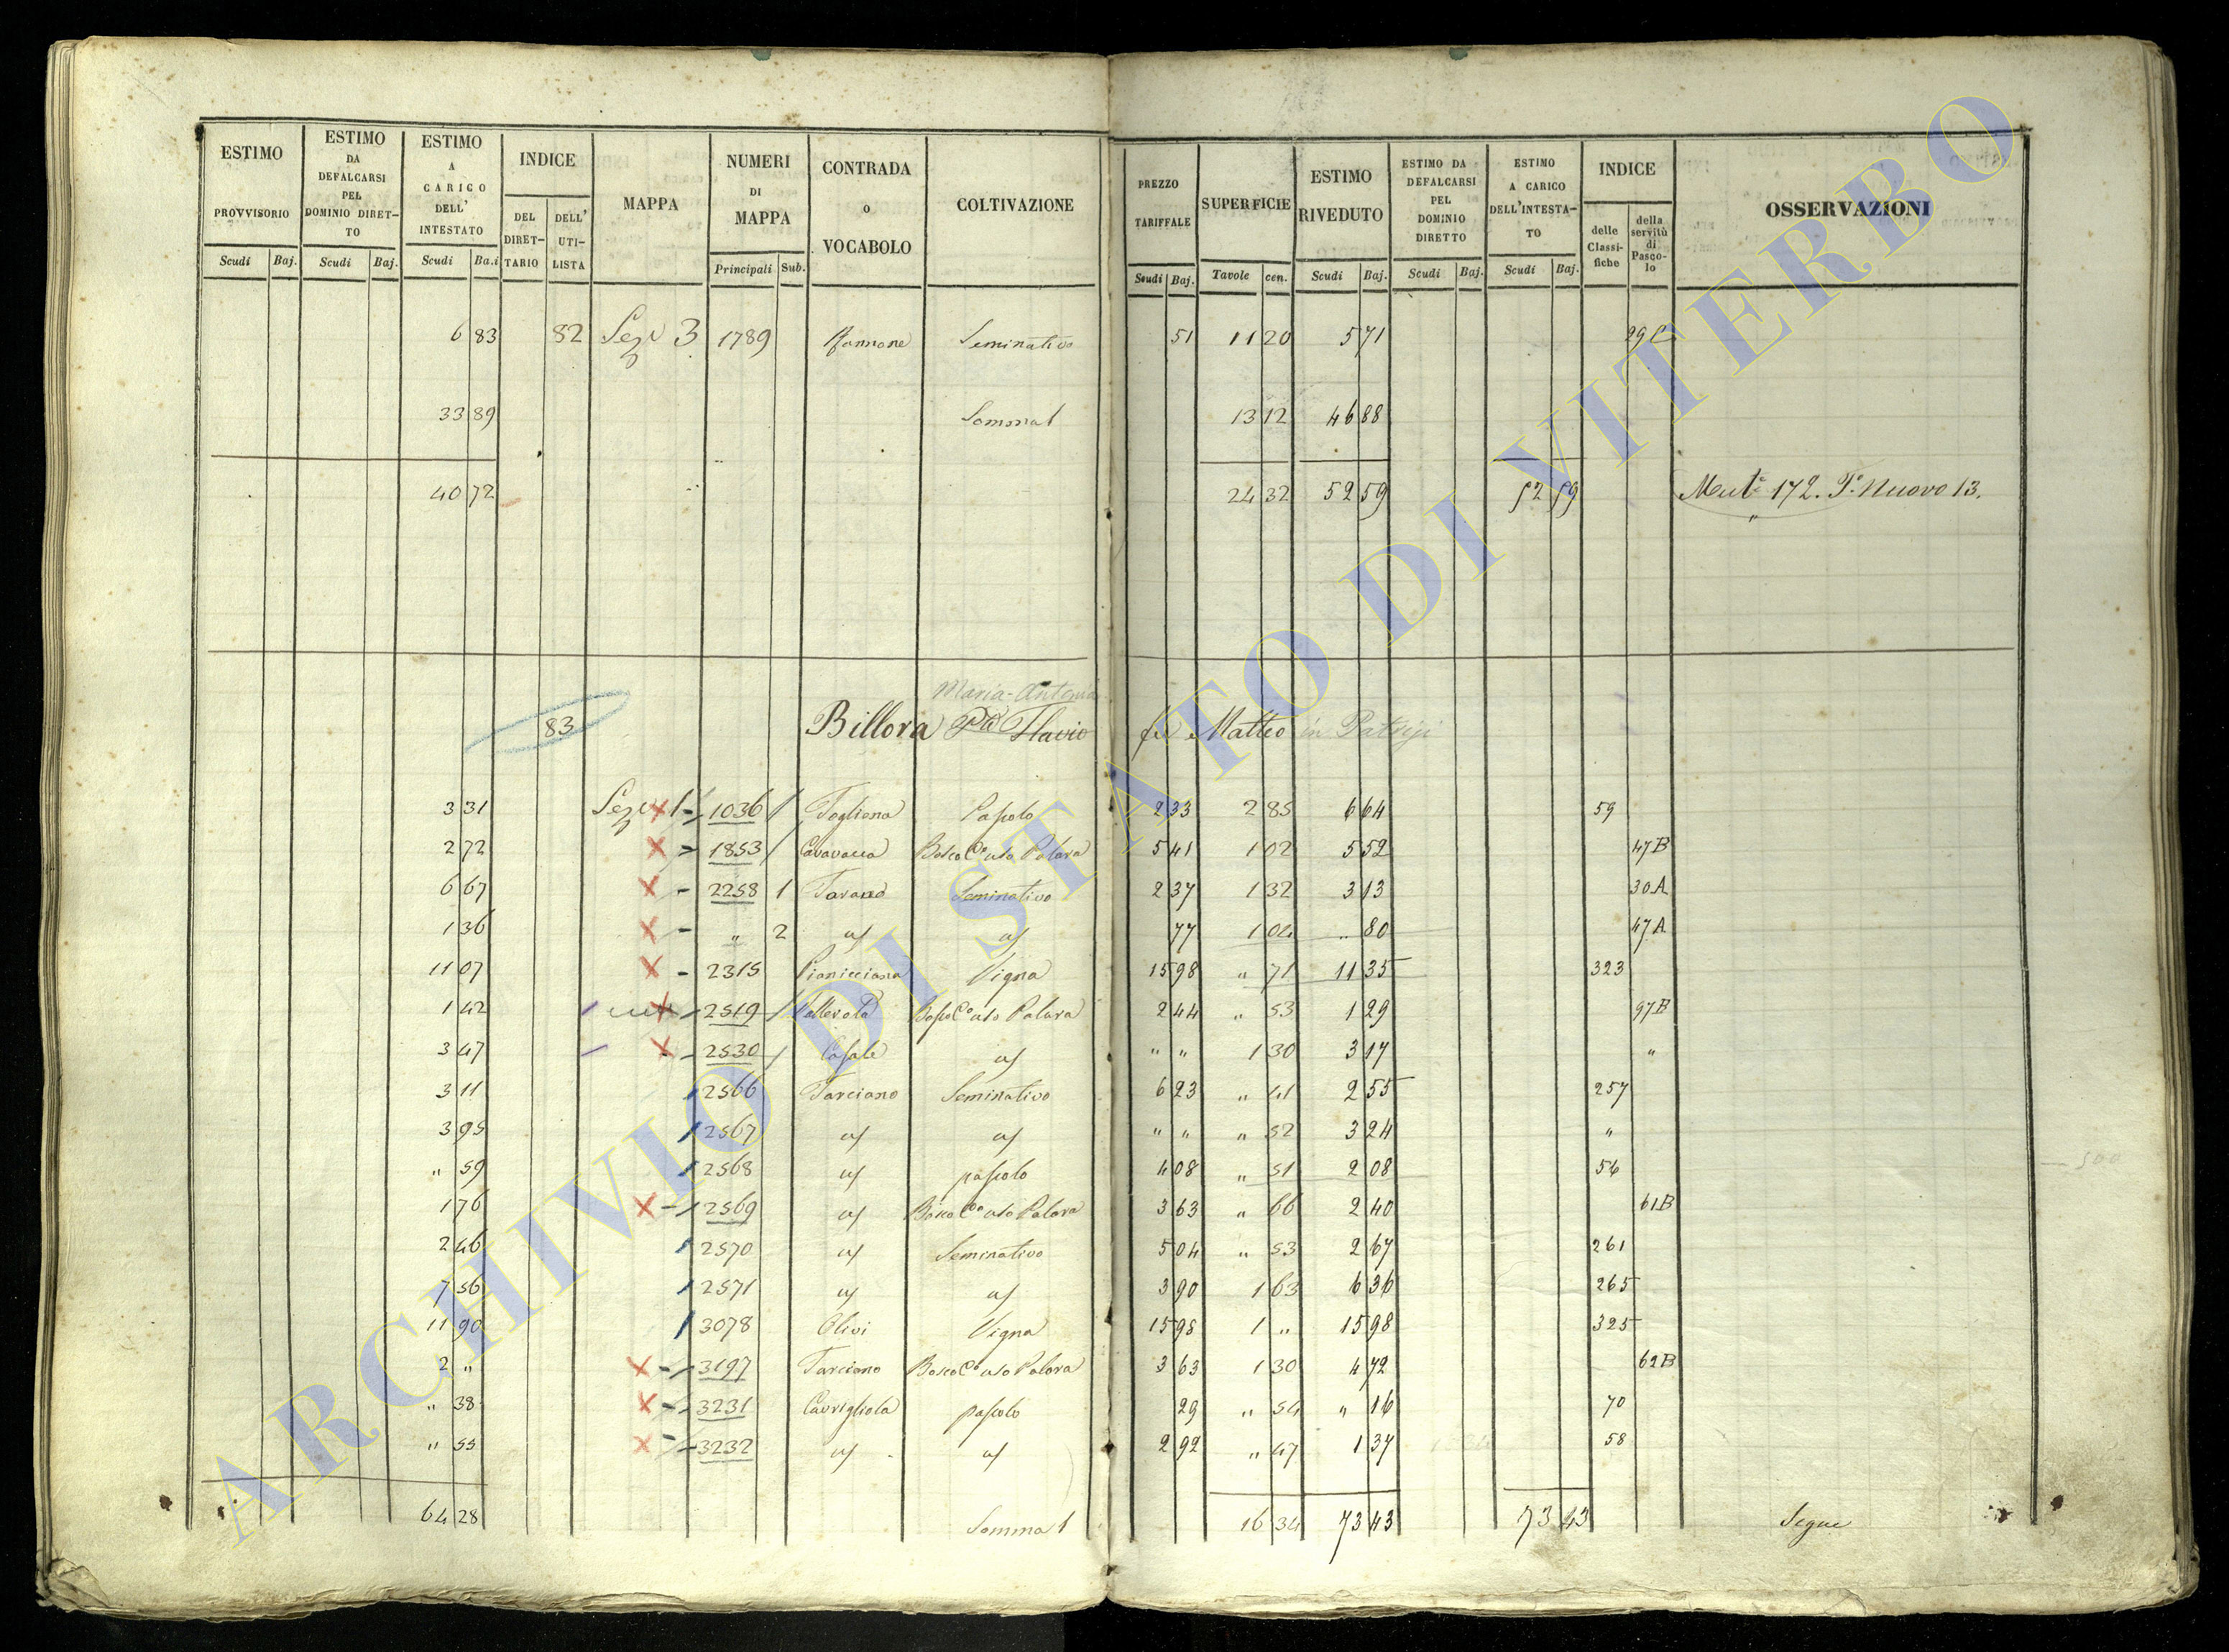 ESTIMO PROVVISORIO | ESTIMO DA DEFALCARSI PEL DOMINIO DIRET-TO | ESTIMO A CARICO DELL' INTESTATO | INDICE | MAPPA | NUMERI DI MAPPA | CONTRADA O VOCABOLO | COLTIVAZIONE | PREZZO TARIFFALE | SUPERFICIE | ESTIMO RIVEDUTO | ESTIMO DA DEFALCARSI PEL DOMINIO DIRETTO | ESTIMO A CARICO DELL'INTESTA-TO | INDICE | OSSERVAZIONI
DEL DIRET-TARIO | DELL' UTI-LISTA | delle Classi-fiche | della servitù di Pasco-lo
Scudi | Baj. | Scudi | Baj. | Scudi | Ba.i | Principali | Sub. | Scudi | Baj. | Tavole | cen. | Scudi | Baj. | Scudi | Baj. | Scudi | Baj.
6 83 | 82 | Sez 3 | 1789 | Seminativo | 51 | 11 20 | 5 71
33 89 | Somma | 13 12 | 46 88
40 72 | 24 32 | 52 59 | 52 59 | 172. Nuovo 13.
Maria-Antonia
83 | Billora Flavio Matteo in
3 31 | 1 | 1036 | Togliena | Pascolo | 2 33 | 2 85 | 6 64 | 59
2 72 | 1853 | Bosco C° uso Palara | 5 41 | 1 02 | 5 52 | 47B
6 67 | 2258 | 1 | Tarano | Seminativo | 2 37 | 1 32 | 3 13 | 30A
1 36 | " | 2 | 77 | 1 04 | " 80 | 47A
11 07 | 2315 | Pianicciana | Vigna | 15 98 | " 71 | 11 35 | 323
1 42 | 2519 | Bosco C° uso Palara | 2 44 | " 53 | 1 29 | 97B
3 47 | 2530 | Casale | " " | 1 30 | 3 17 | "
3 11 | 2566 | Tarciano | Seminativo | 6 23 | " 41 | 2 55 | 257
3 95 | 2567 | " " | " 52 | 3 24 | "
" 59 | 2568 | pascolo | 4 08 | " 51 | 2 08 | 56
1 76 | 2569 | Bosco C° uso Palara | 3 63 | " 66 | 2 40 | 61B
2 46 | 2570 | Seminativo | 5 04 | " 53 | 2 67 | 261
7 56 | 2571 | 3 90 | 1 63 | 6 36 | 265
11 90 | 3078 | Olivi | Vigna | 15 98 | 1 " | 15 98 | 325
2 " | 3197 | Tarciano | Bosco C° uso Palara | 3 63 | 1 30 | 4 72 | 62B
" 38 | 3231 | Cavrigliola | pascolo | 29 | " 54 | " 16 | 70
" 55 | 3232 | 2 92 | " 47 | 1 37 | 58
64 28 | Somma | 16 34 | 73 43 | 73 43 | Segue
ARCHIVIO DI STATO DI VITERBO